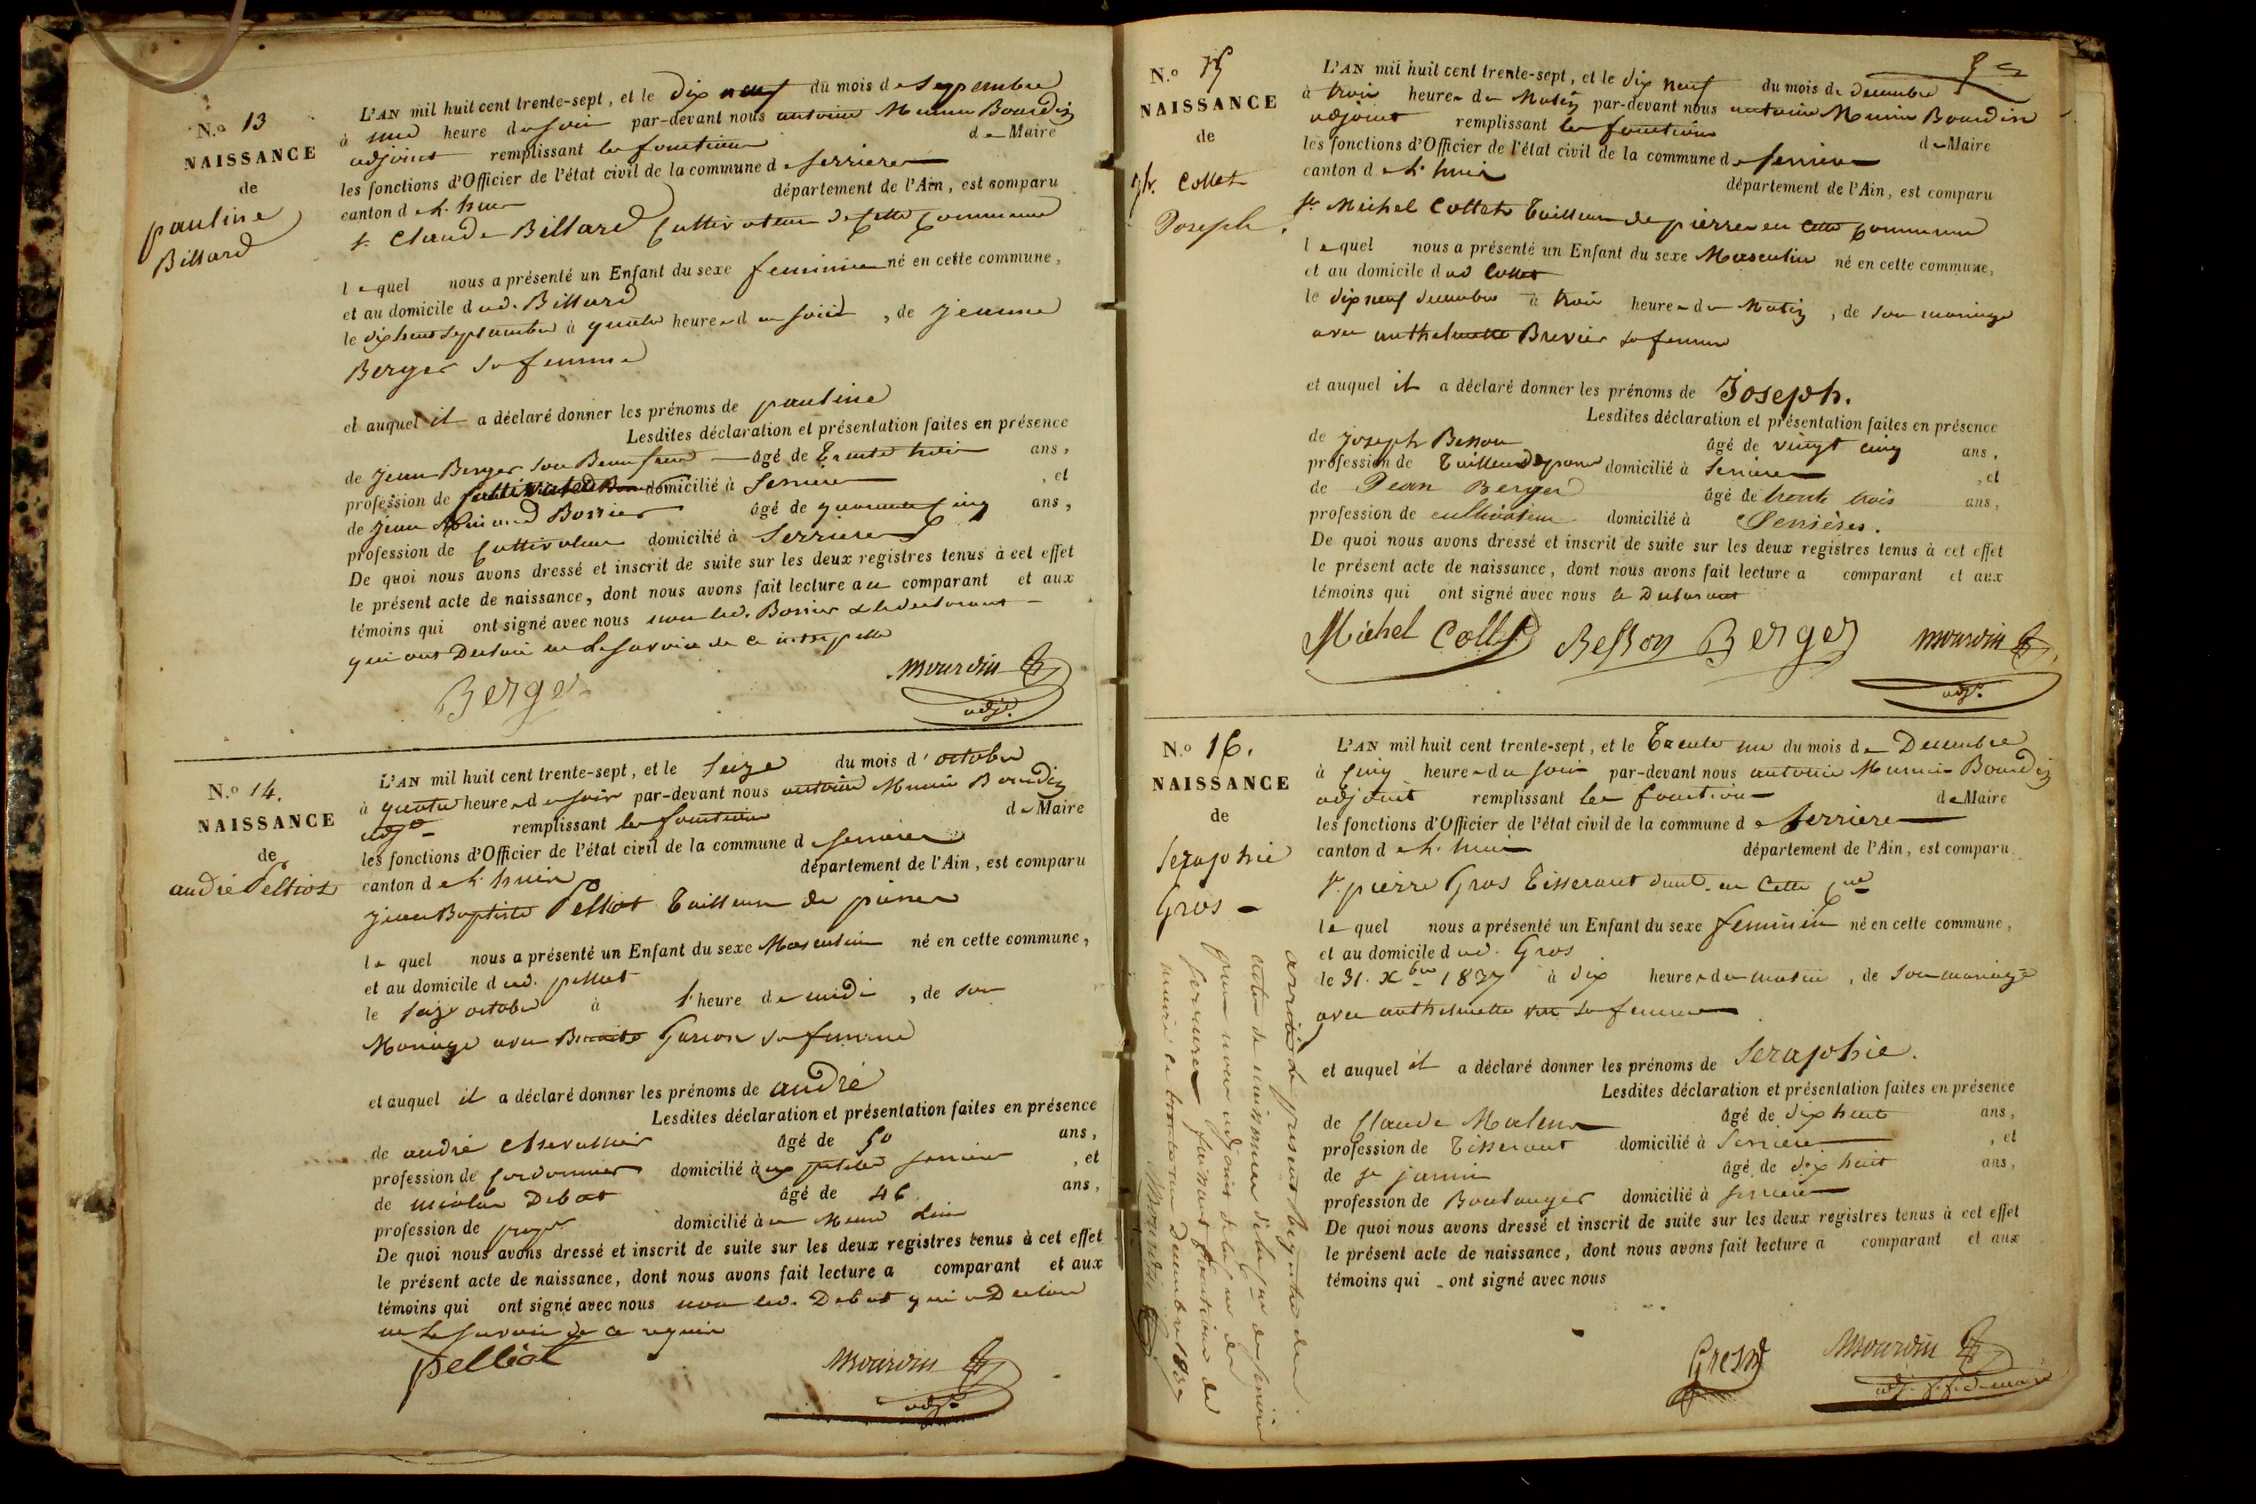 N.º 13
NAISSANCE
de
pauline
Billard
L'AN mil huit cent trente-sept, et le dix neuf du mois de Septembre
à une heure du soir par-devant nous antoine Bourdin
adjoint remplissant les fonctions de Maire
les fonctions d'Officier de l'état civil de la commune de serrieres
canton de département de l'Ain, est comparu
sr. Claude Billard Cultivateur de cette commune
lequel nous a présenté un Enfant du sexe feminin né en cette commune,
et au domicile dud. Billard
le dix huit septembre à quatre heures du soir, de jeanne
Berger sa femme
et auquel il a déclaré donner les prénoms de pauline
Lesdites déclaration et présentation faites en présence
de jean Berger son Beau frere âgé de trente trois ans,
profession de Cultivateur domicilié à Serrieres, et
de jean Borrier âgé de quarante cinq ans,
profession de Cultivateur domicilié à Serrieres
De quoi nous avons dressé et inscrit de suite sur les deux registres tenus à cet effet
le présent acte de naissance, dont nous avons fait lecture au comparant et aux
témoins qui ont signé avec nous non led. Borrier & le declarant
qui ont Declaré ne le savoir de ce
Berger
adjt.
N.º 14.
NAISSANCE
de
andré Pelliot
L'AN mil huit cent trente-sept, et le seize du mois d'octobre
à quatre heures du soir par-devant nous antoine Bourdin
adjt remplissant les fonctions de Maire
les fonctions d'Officier de l'état civil de la commune de serrieres
canton de département de l'Ain, est comparu
jean Baptiste Pelliot Tailleur de pierres
lequel nous a présenté un Enfant du sexe Masculin né en cette commune,
et au domicile dud. pelliot
le seize octobre à l'heure de midi, de son
Mariage avec sa femme
et auquel il a déclaré donner les prénoms de andré
Lesdites déclaration et présentation faites en présence
de andré Chevallier âgé de 50 ans,
profession de Cordonnier domicilié à serrieres, et
de nicolas Debat âgé de 46 ans,
profession de domicilié à
De quoi nous avons dressé et inscrit de suite sur les deux registres tenus à cet effet
le présent acte de naissance, dont nous avons fait lecture a comparant et aux
témoins qui ont signé avec nous non led. Debat qui a Declaré
ne le savoir de ce requis
Pelliot
adjt.
N.º 15
NAISSANCE
de
Collet
Joseph.
L'AN mil huit cent trente-sept, et le dix neuf du mois de decembre
à trois heures du Matin par-devant nous antoine Bourdin
adjoint remplissant les fonctions de Maire
les fonctions d'Officier de l'état civil de la commune de serrieres
canton de département de l'Ain, est comparu
sr. Michel Collet Tailleur de pierres en cette commune
lequel nous a présenté un Enfant du sexe Masculin né en cette commune,
et au domicile dud Collet
le dix neuf decembre à trois heures du Matin, de son mariage
avec anthelmette Brevier sa femme
et auquel il a déclaré donner les prénoms de Joseph.
Lesdites déclaration et présentation faites en présence
de joseph Besson âgé de vingt cinq ans,
profession de Tailleur de pierre domicilié à Serrieres, et
de Jean Berger âgé de trente trois ans,
profession de cultivateur domicilié à Serrières.
De quoi nous avons dressé et inscrit de suite sur les deux registres tenus à cet effet
le présent acte de naissance, dont nous avons fait lecture a comparant et aux
témoins qui ont signé avec nous le Declarant
Michel Collet Besson Berger
adjt.
N.º 16.
NAISSANCE
de
Seraphie
Gros
L'AN mil huit cent trente-sept, et le Trente un du mois de Decembre
à cinq heures du soir par-devant nous antoine Bourdin
adjoint remplissant les fonctions de Maire
les fonctions d'Officier de l'état civil de la commune de serrieres
canton de département de l'Ain, est comparu
sr. pierre Gros Tisserant en cette Cne
lequel nous a présenté un Enfant du sexe feminin né en cette commune,
et au domicile dud. Gros
le 31. Xbre 1837 à dix heures du matin, de son mariage
avec anthelmette sa femme
et auquel il a déclaré donner les prénoms de Seraphie.
Lesdites déclaration et présentation faites en présence
de Claude âgé de dix huit ans,
profession de Tisserant domicilié à Serrieres, et
de âgé de dix huit ans,
profession de Boulanger domicilié à serrieres
De quoi nous avons dressé et inscrit de suite sur les deux registres tenus à cet effet
le présent acte de naissance, dont nous avons fait lecture a comparant et aux
témoins qui ont signé avec nous
arrêté le present Registre des
actes de naissances de la Cne de serrieres
par nous adjoint de la Cne de
serrieres faisant fonctions de
maire ce trente un Decembre 1837